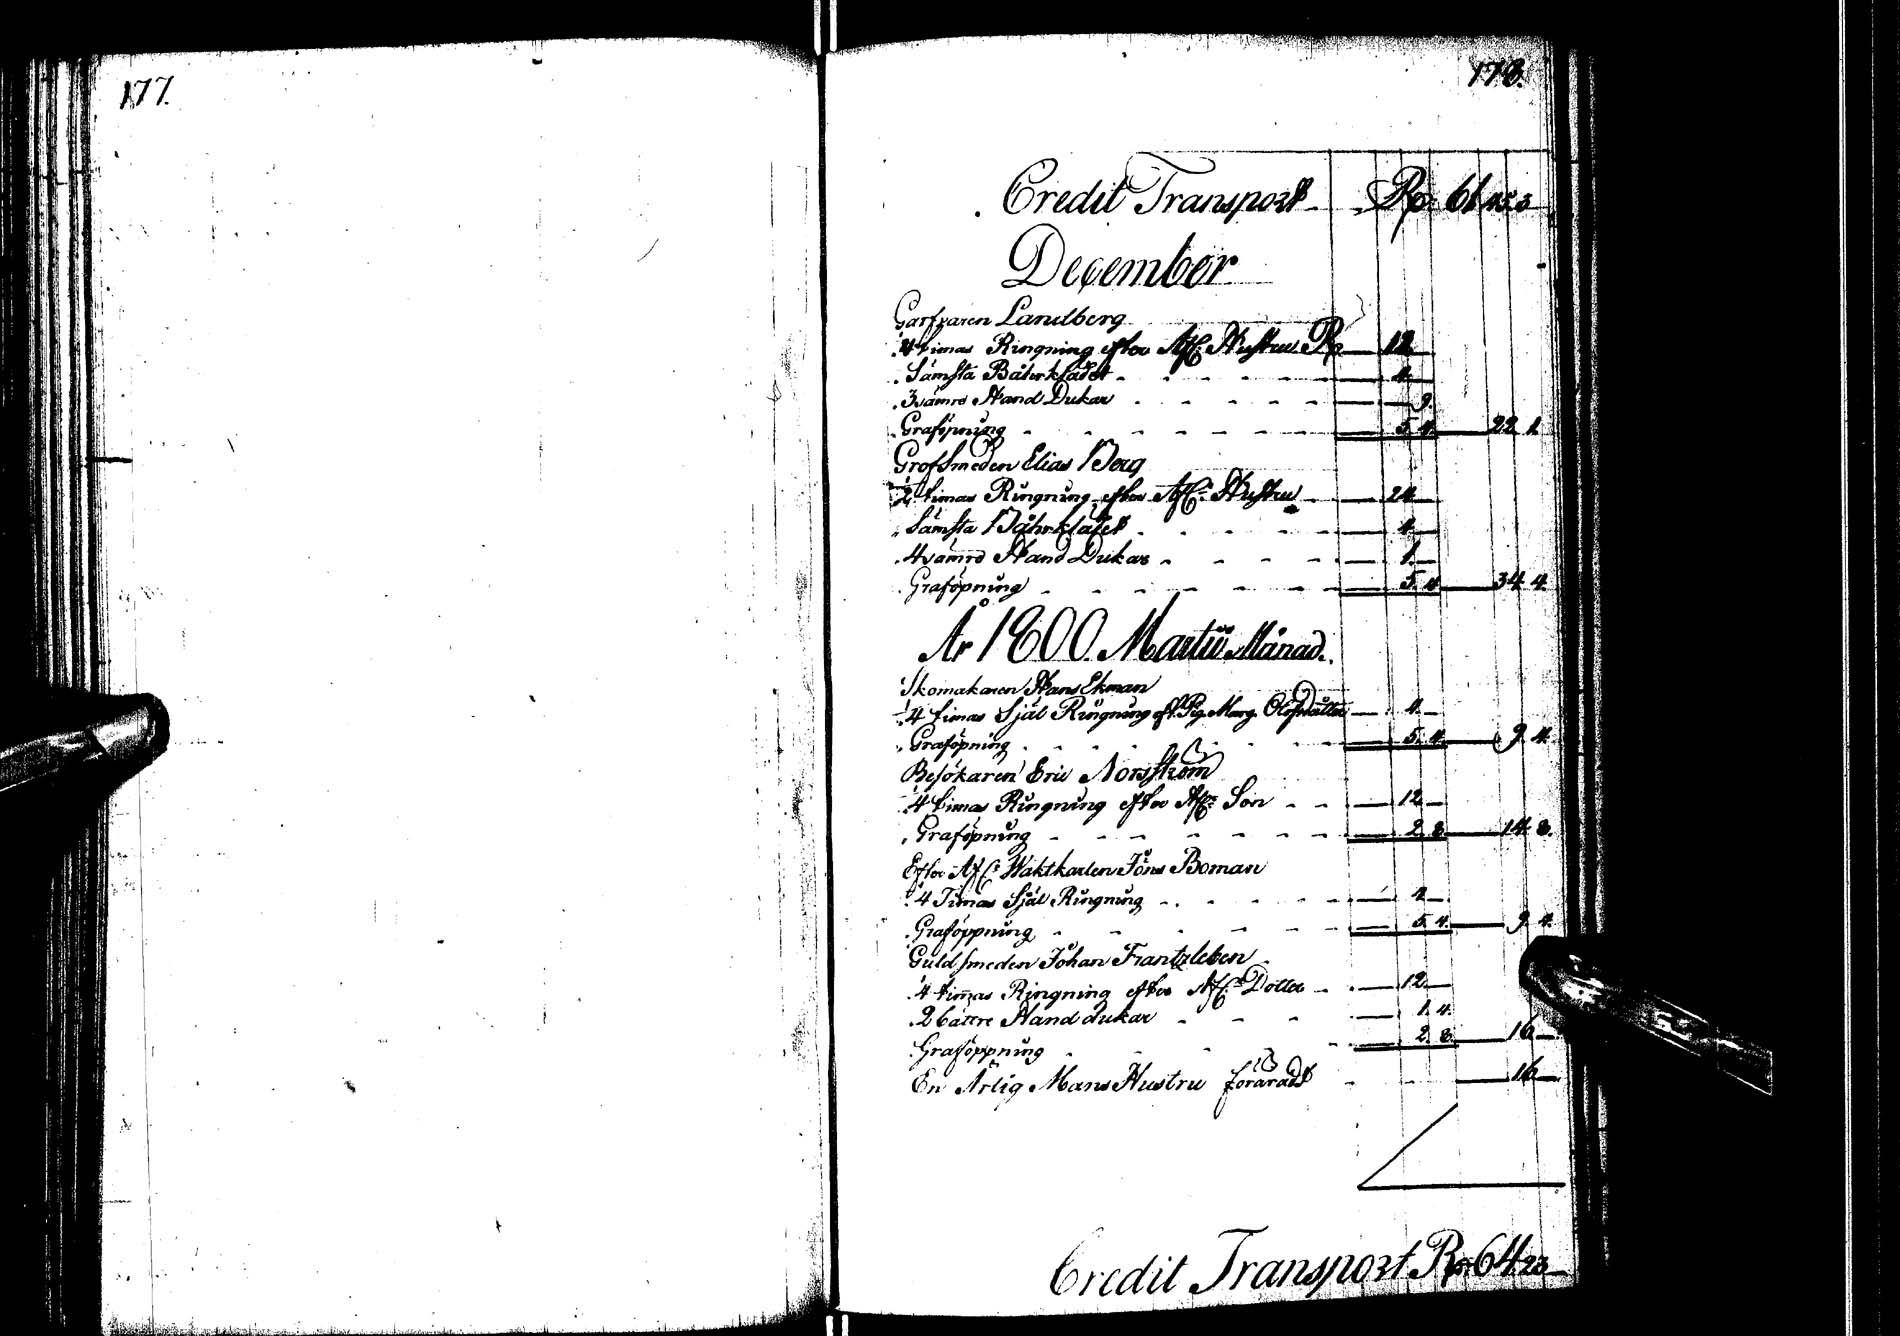 177.
178.
Credit Transport Rd 61 45. 3
December
Garfvaren Landberg
4 timas Ringning efter Afl: Hustru Rd 12
Sämsta Bårkladet 4
3 sämre Hand Dukar 9.
Graföpning 5 4 22 1
Grofsmeden Elias Berg
2 timas Ringning efter Afl: Hustru 24
Sämsta Båhrklädet 4
4 sämre Hand Dukar 1.
Graföpning 5. 4 34 4
År 1800. Martii Månad.
Skomakaren Hans Ekman
4 timas Själ Ringning eft. Pig. Marg. Olofsdotter 4
Graföpning 5. 4 9 4.
Besökaren Eric Norsström
4 timas Ringning efter Afl: Son 12
Graföpning 2. 8. 14. 8.
Efter Afl: Waktkarlen Jöns Boman
4 Timas Själ Ringning 4
Graföppning 5. 4. 9 4.
Guldsmeden Johan Frantzleben
4 timas Ringning efter Afl: Dotter 12
2 bättre Hand dukar 1. 4.
Graföppning 2. 8. 16
En Ärlig Mans Hustru föräradt 16
Credit Transport Rd 64. 23